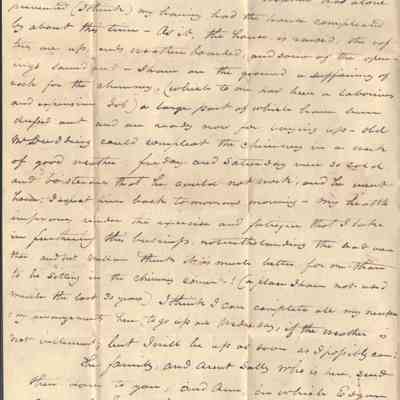 prevented (I think) my having had the house compleated
by about this time - As it, the house is raised, the raf
ters are up, ends weather boarded, and some of the open-
ings sawed out - I have on the ground a sufficiency of
rock for the chimney, (which to me has been a laborious
and expensive Job) a large part of which have been
dressed out and are ready now for running up - old
Mr could compleat the chimney in a week
of good weather - friday and Saturday was so cold
and boisterous that he could not work, and he went
home; I expect him back tomorrow morning - My health
improves under the exercise and fatigue that I take
in furthering this buisness, notwithstanding the bad wea-
ther and think it is much better for me than
to be sitting in the chimney corner - (a place I have not used
much the last 30 years) I think I can complete all my
arrangements here, to go up on Wednesday, if the weather is
not inclement, but I will be up as soon as I possibly can -
The family, and Aunt Sally who is here, send
their love to you, and Ann, in which